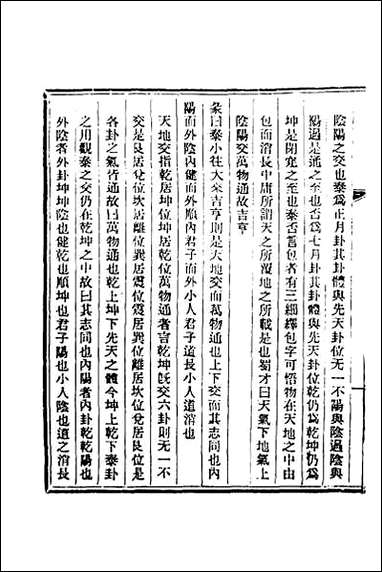 陰陽之交也泰爲正月卦其卦體與先天卦位無一不陽與陰遇陰與
陽遇是通之至也否爲七月卦其卦體與先天卦位乾仍爲乾坤仍爲
坤是閉塞之至也泰否言包者有三細繹包字可悟物在天地之中由
包而消長中庸所謂天之所覆地之所載是也蜀才曰天氣下地氣上
陰陽交萬物通故吉亨
彖曰泰小往大來吉亨則是天地交而萬物通也上下交而其志同也內
陽而外陰內健而外順內君子而外小人君子道長小人道消也
天地交指乾居坤位坤居乾位萬物通者言乾坤旣交六卦則無一不
交是艮居兌位兌居離位巽居震位震居巽位離居坎位兌居艮位是
各卦之氣皆通故曰萬物通也乾上坤下先天之體今坤上乾下泰卦
之用觀泰之交仍在乾坤之中故曰其志同也內陽者內卦乾乾陽也
外陰者外卦坤坤陰也健乾也順坤也君子陽也小人陰也道之消長